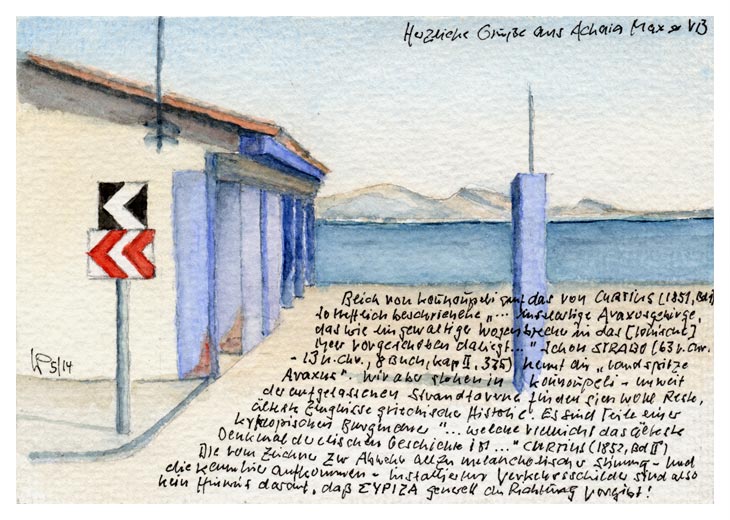 Herzliche Grüße aus Achaia Max & VB
Blick von Kounoupeli auf das von CURTIUS (1851, Bd I)
so trefflich beschriebene "... inselartige Araxosgebirge,
das wie ein gewaltiger Wogenbrecher in das [Ionische]
Meer vorgeschoben daliegt..." Schon STRABO (63 v. Chr.
- 13 n. Chr., 8 Buch, Kap II, 335) kennt die "Landspitze
Araxus". Wir aber stehen in Kounoupeli - unweit
der aufgelassenen Strandtaverne finden sich wohl Reste,
älteste Zeugnisse griechische Historie. Es sind Teile einer
kyklopischen Burgmauer "... welche vielleicht das älteste
Denkmal der elischen Geschichte ist..." CURTIUS (1852, Bd II)
Die vom Zeichner zur Abwehr allzu melancholischer Stimmung - und
die kann hier aufkommen - installierten Verkehrsschilder sind also
kein Hinweis darauf, daß ΣΥΡΙΖΑ generell die Richtung vorgibt!
5/14